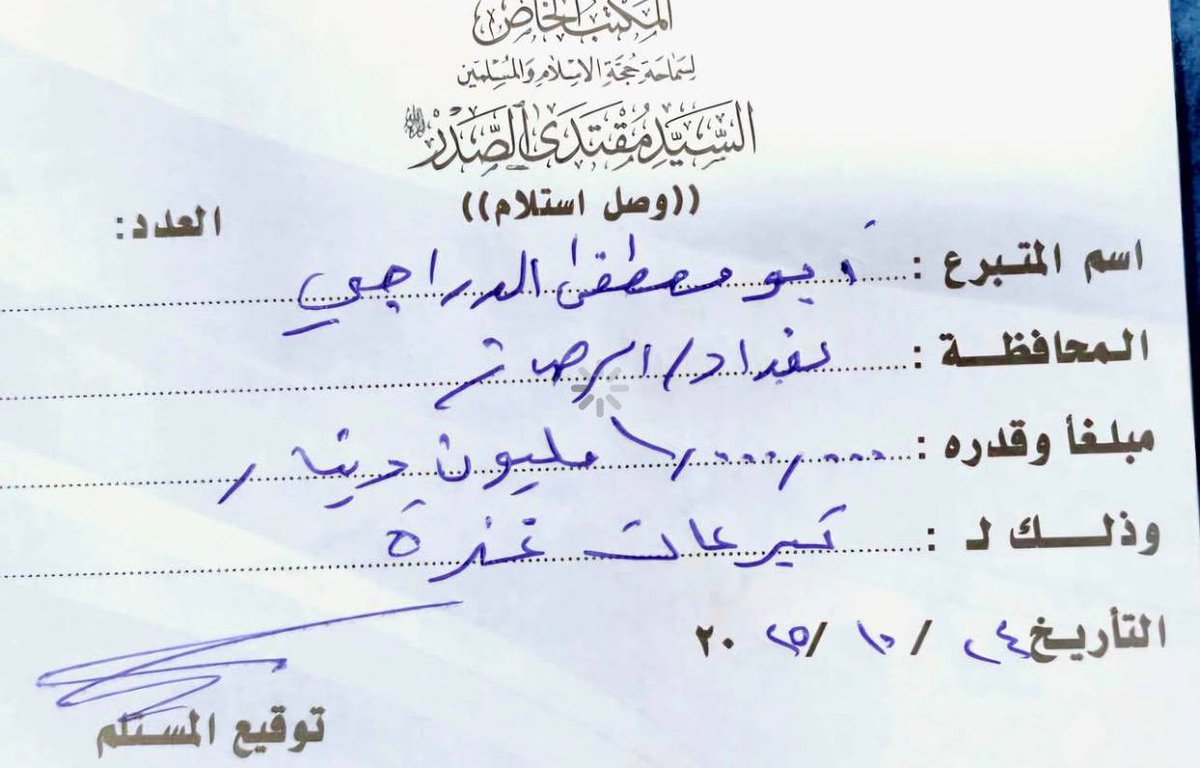 المكتب الخاص
لسماحة حجة الإسلام والمسلمين
السيد مقتدى الصدر
((وصل استلام))
العدد:
اسم المتبرع : أبو مصطفى الدراجي
المحافظة : بغداد / الرصافة
مبلغاً وقدره : ١,٠٠٠,٠٠٠ مليون دينار
وذلك لـ : تبرعات غزة
التأريخ ٢٤ / ١٠ / ٢٠٢٥
توقيع المستلم